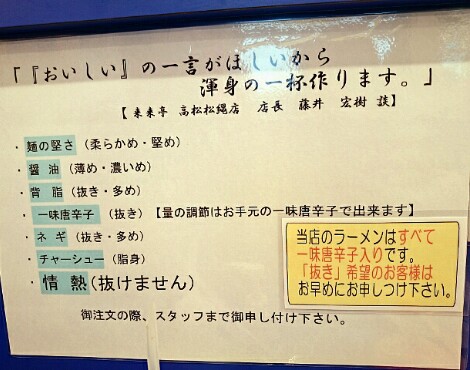 「『おいしい』の一言がほしいから
渾身の一杯作ります。」
【来来亭 高松松縄店 店長 藤井 宏樹 談】
・麺の堅さ(柔らかめ・堅め)
・醤油(薄め・濃いめ)
・背脂(抜き・多め)
・一味唐辛子(抜き)【量の調節はお手元の一味唐辛子で出来ます】
・ネギ(抜き・多め)
・チャーシュー(脂身)
・情熱(抜けません)
御注文の際、スタッフまで御申し付け下さい。
当店のラーメンはすべて
一味唐辛子入りです。
「抜き」希望のお客様は
お早めにお申しつけ下さい。